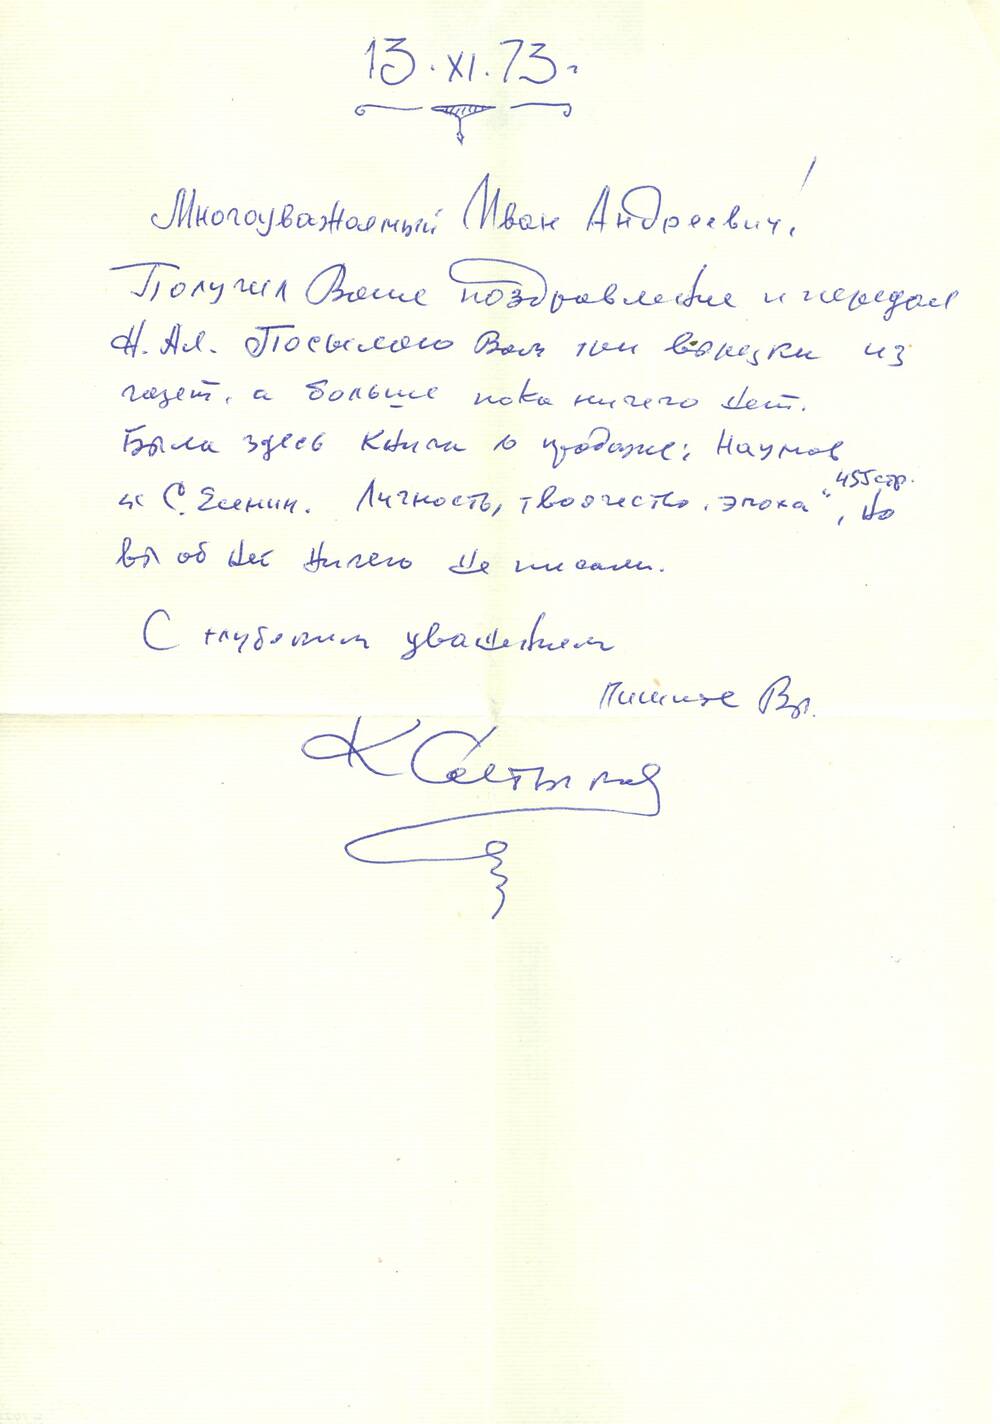 13.XI.73г
Многоуважаемый Иван Андреевич!
Получил Ваше поздравление и передал
Н. Ал. Посылаю Вам три вырезки из
газет, а больше пока ничего нет.
Была здесь книга в продаже: Наумов
"С. Есенин. Личность, творчество, эпоха", 455 стр. Но
вы об ней ничего не писали.
С глубоким уважением
Пишите
К